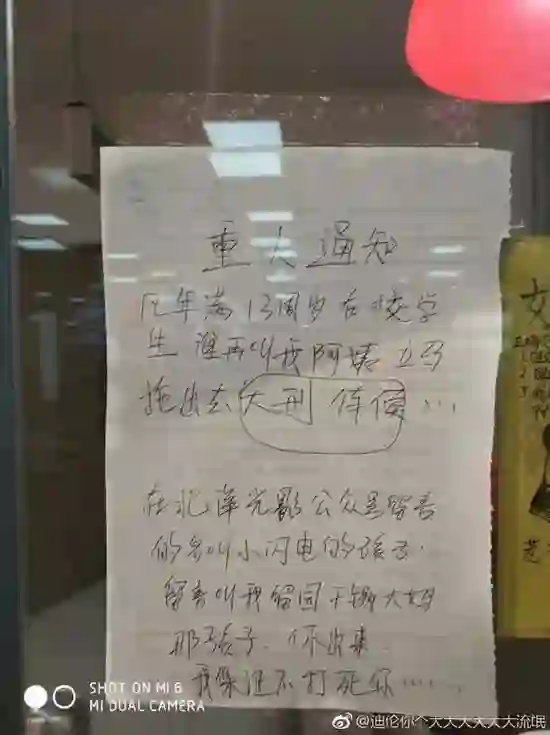 重大通知
凡年满13周岁在校学
生 谁再叫我阿姨 立马
拖出去大刑 伺候...
在北華光影公众号留言
的名叫小闪电的孩子.
留言叫我留园干锅大妈
那孩子. 你出来
我保证不打死你......
女
SHOT ON MI 6
MI DUAL CAMERA
@迪伦你个大大大大大大流氓